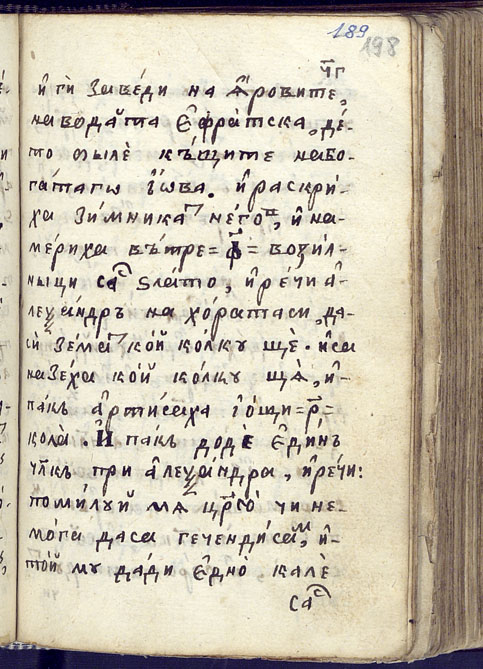 189
198
ч҃г
и҆ гѝ заведѝ на а҆́ровите,
на вода́та Є҆фра́тска, де́-
то были̏ къ́щите на бо-
га́таго і҆́ѡва. и҆ раскри́-
ха зи́мника не́гов, и҆ на-
ме́риха въ́тре = ҂а҃ = вози́л-
ныци са́с ѕла́то, и҆ ре́чи а҆-
леѯа́ндръ на хо́ратаси, да-
сѝ зе́мат ко́й ко́лку щѐ. и҆ са
назе́ха ко́й ко́лку щѧ̀, и҆-
па́къ а҆рти́саха і҆о́щи = р҃ =
кола̀. И҆ па́къ додѐ є҆ди́нъ
чл҃къ при а҆леѯа́ндра, и҆ ре́чи:
поми́луй мѧ цр҃ю̀ чи не
мо́га даса гечендиса́м, и҆-
то́й му да́ди є҆дно̀ калѐ
са́с